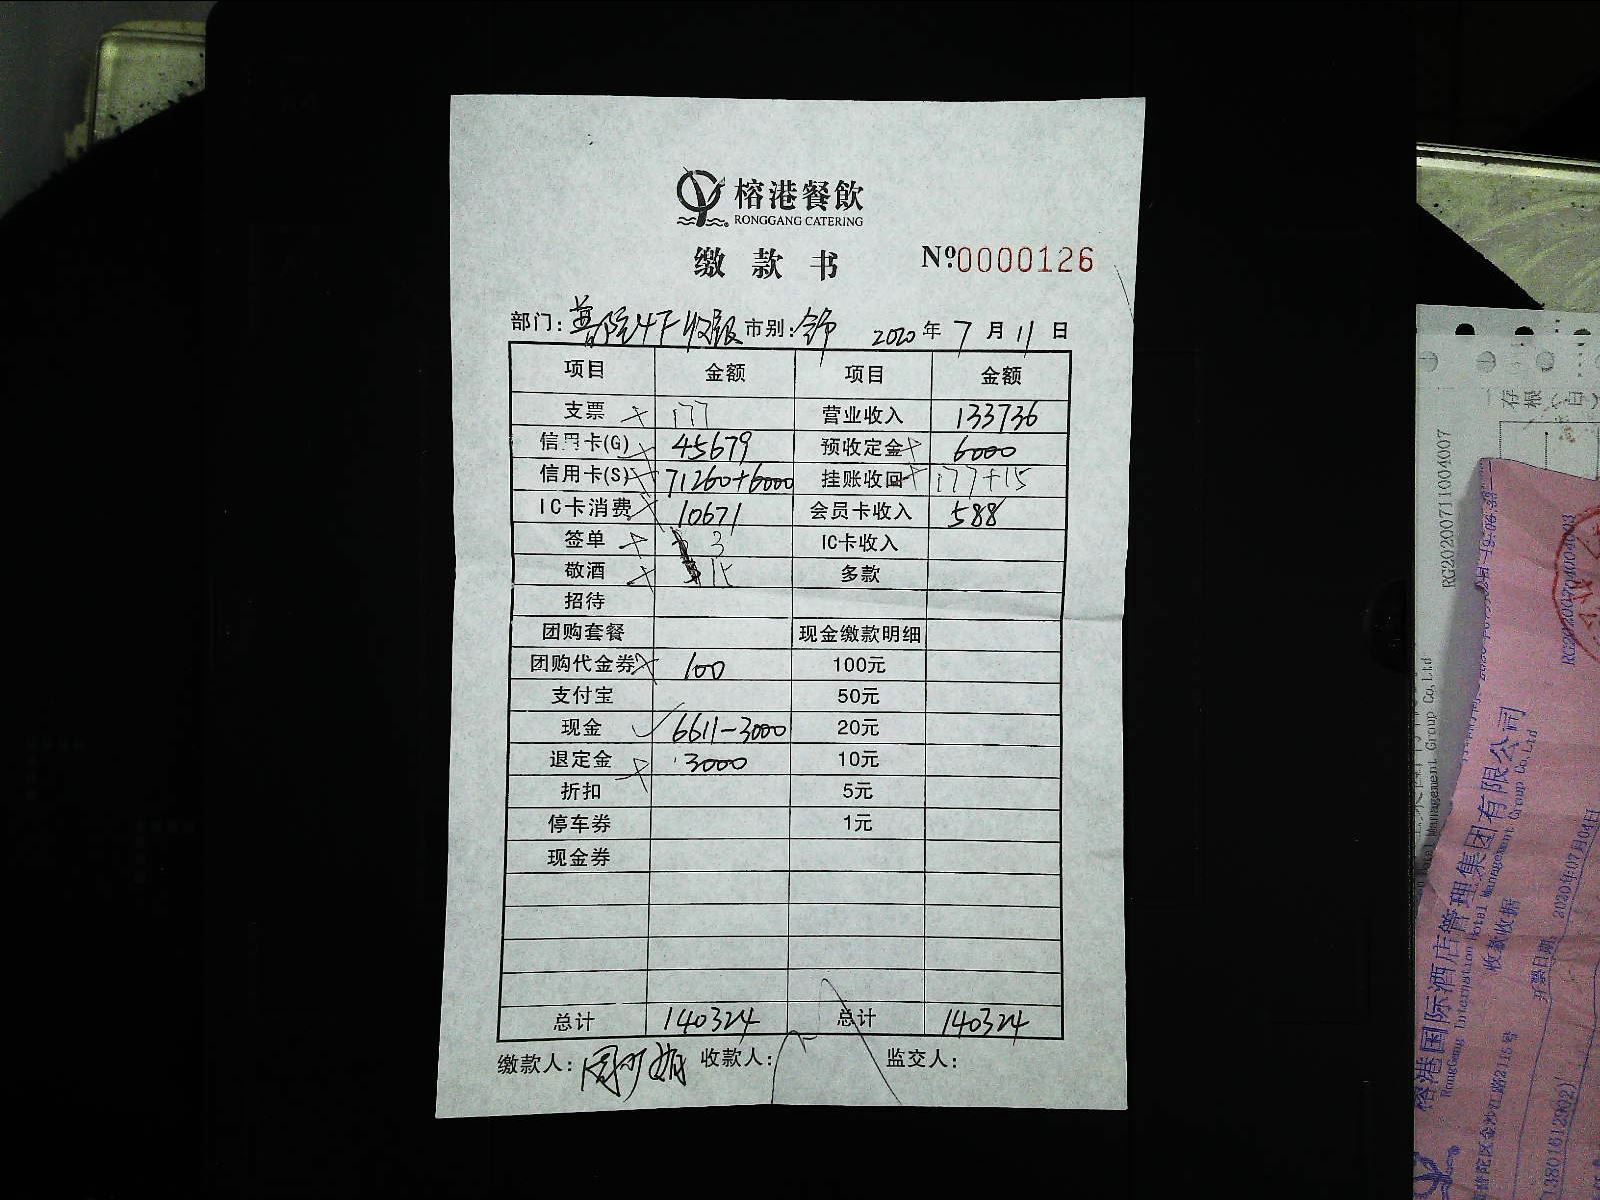 榕港餐飲
RONGGANG CATERING
缴款书 №0000126
部门: 市别: 2020年7月11日
项目 金额 项目 金额
支票 × 177 营业收入 133736
信用卡(G) × 45679 预收定金 × 6000
信用卡(S) × 71260+6000 挂账收回 × 177+15
IC卡消费 × 10671 会员卡收入 588
签单 × 3 IC卡收入
敬酒 × 15 多款
招待
团购套餐 现金缴款明细
团购代金券 × 100 100元
支付宝 50元
现金 ✓ 6611-3000 20元
退定金 × 3000 10元
折扣 5元
停车券 1元
现金券
总计 140324 总计 140324
缴款人: 收款人: 监交人:
RG20200711004007
榕港国际酒店管理集团有限公司
RongGang International Hotel Management Group Co,Ltd
收款收据
开票日期: 2020年07月04日